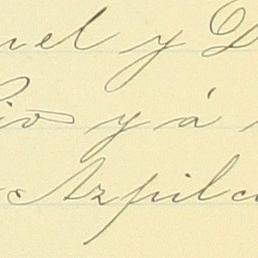 uel y D
cio y á
Azpilc